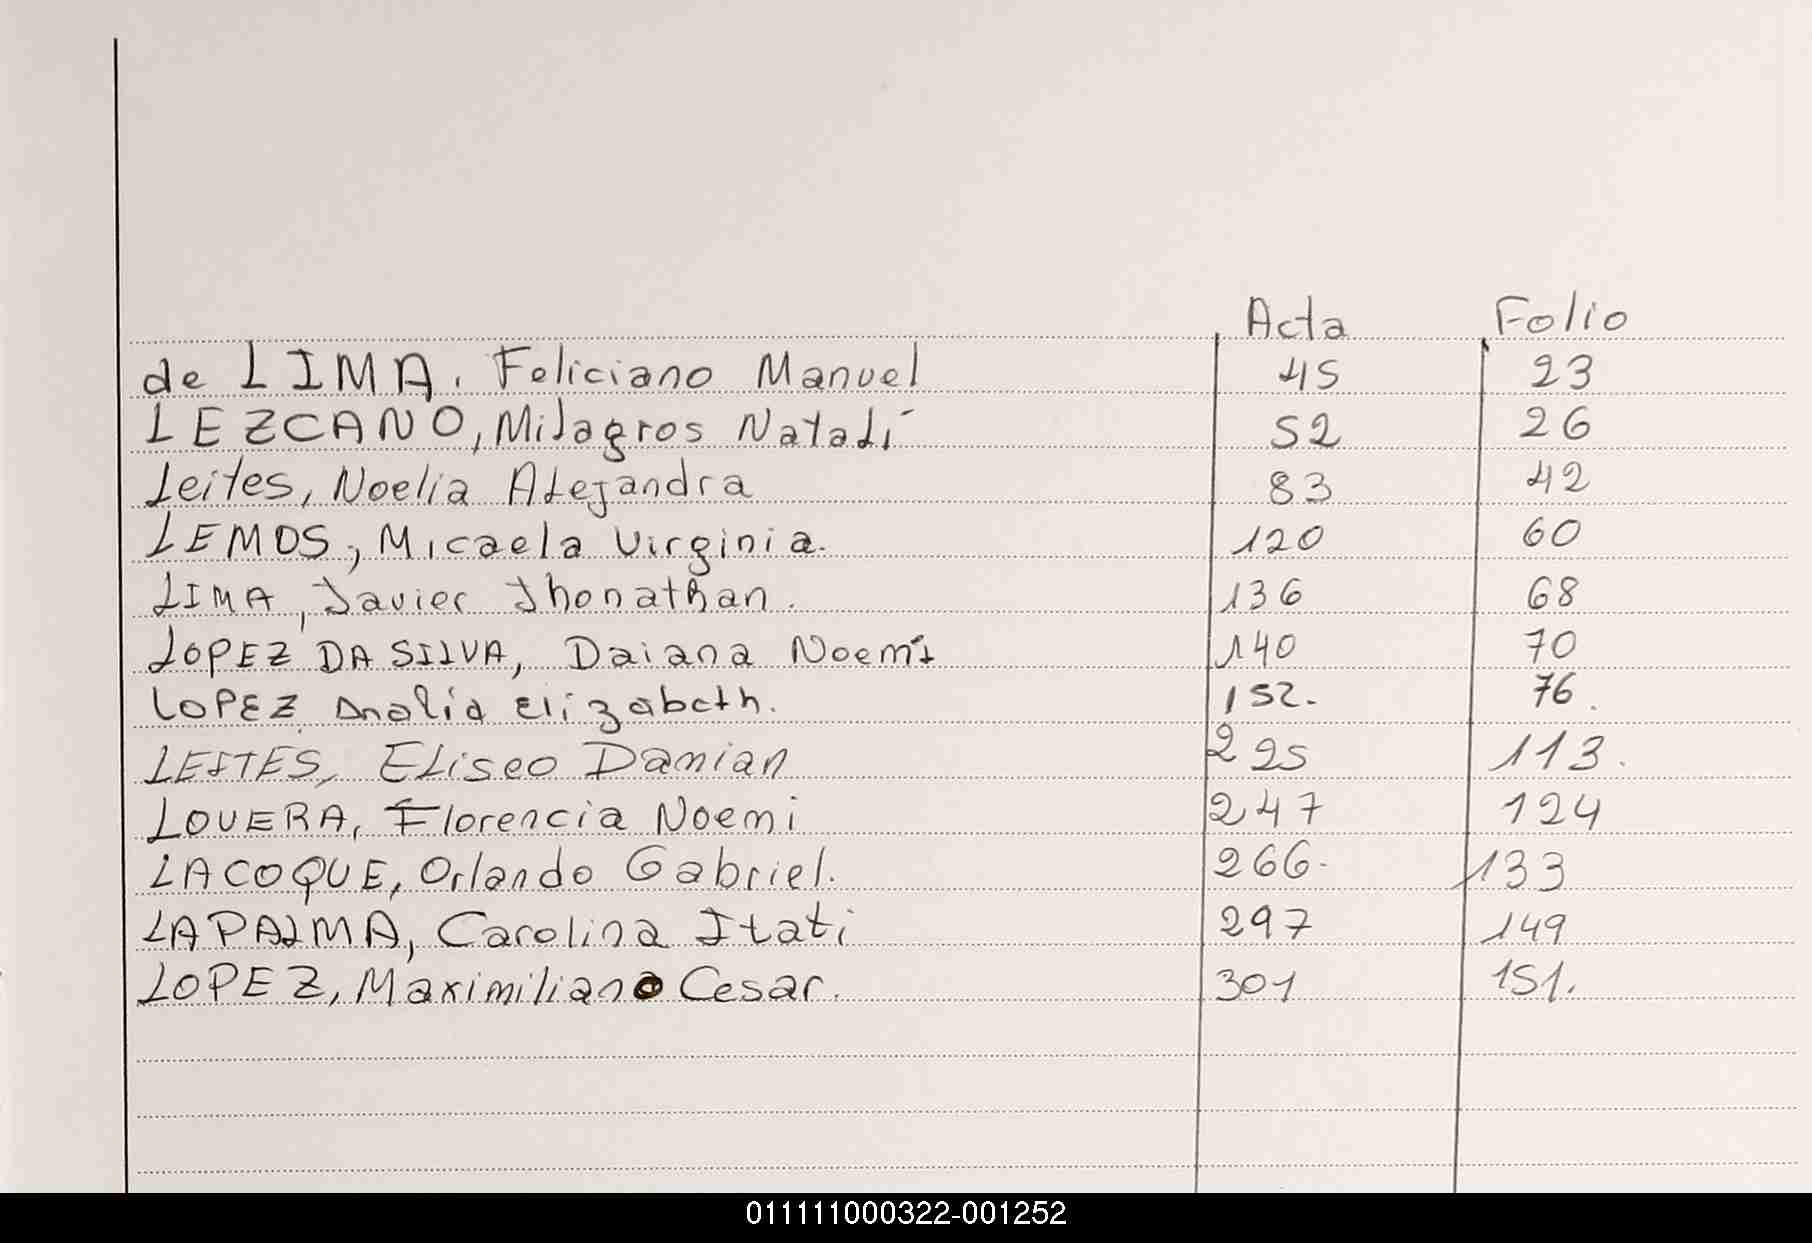 Acta Folio
de LIMA, Feliciano Manuel 45 23
LEZCANO, Milagros Natalí 52 26
Leites, Noelia Alejandra 83 42
LEMOS, Micaela Virginia. 120 60
LIMA, Javier Jhonathan. 136 68
LOPEZ DA SILVA, Daiana Noemí 140 70
LOPEZ, Analía Elizabeth. 152. 76.
LEITES, Eliseo Damian 225 113.
LOVERA, Florencia Noemi 247 124
LACOQUE, Orlando Gabriel. 266. 133
LAPALMA, Carolina Itati 297 149
LOPEZ, Maximiliano Cesar. 301 151.
011111000322-001252